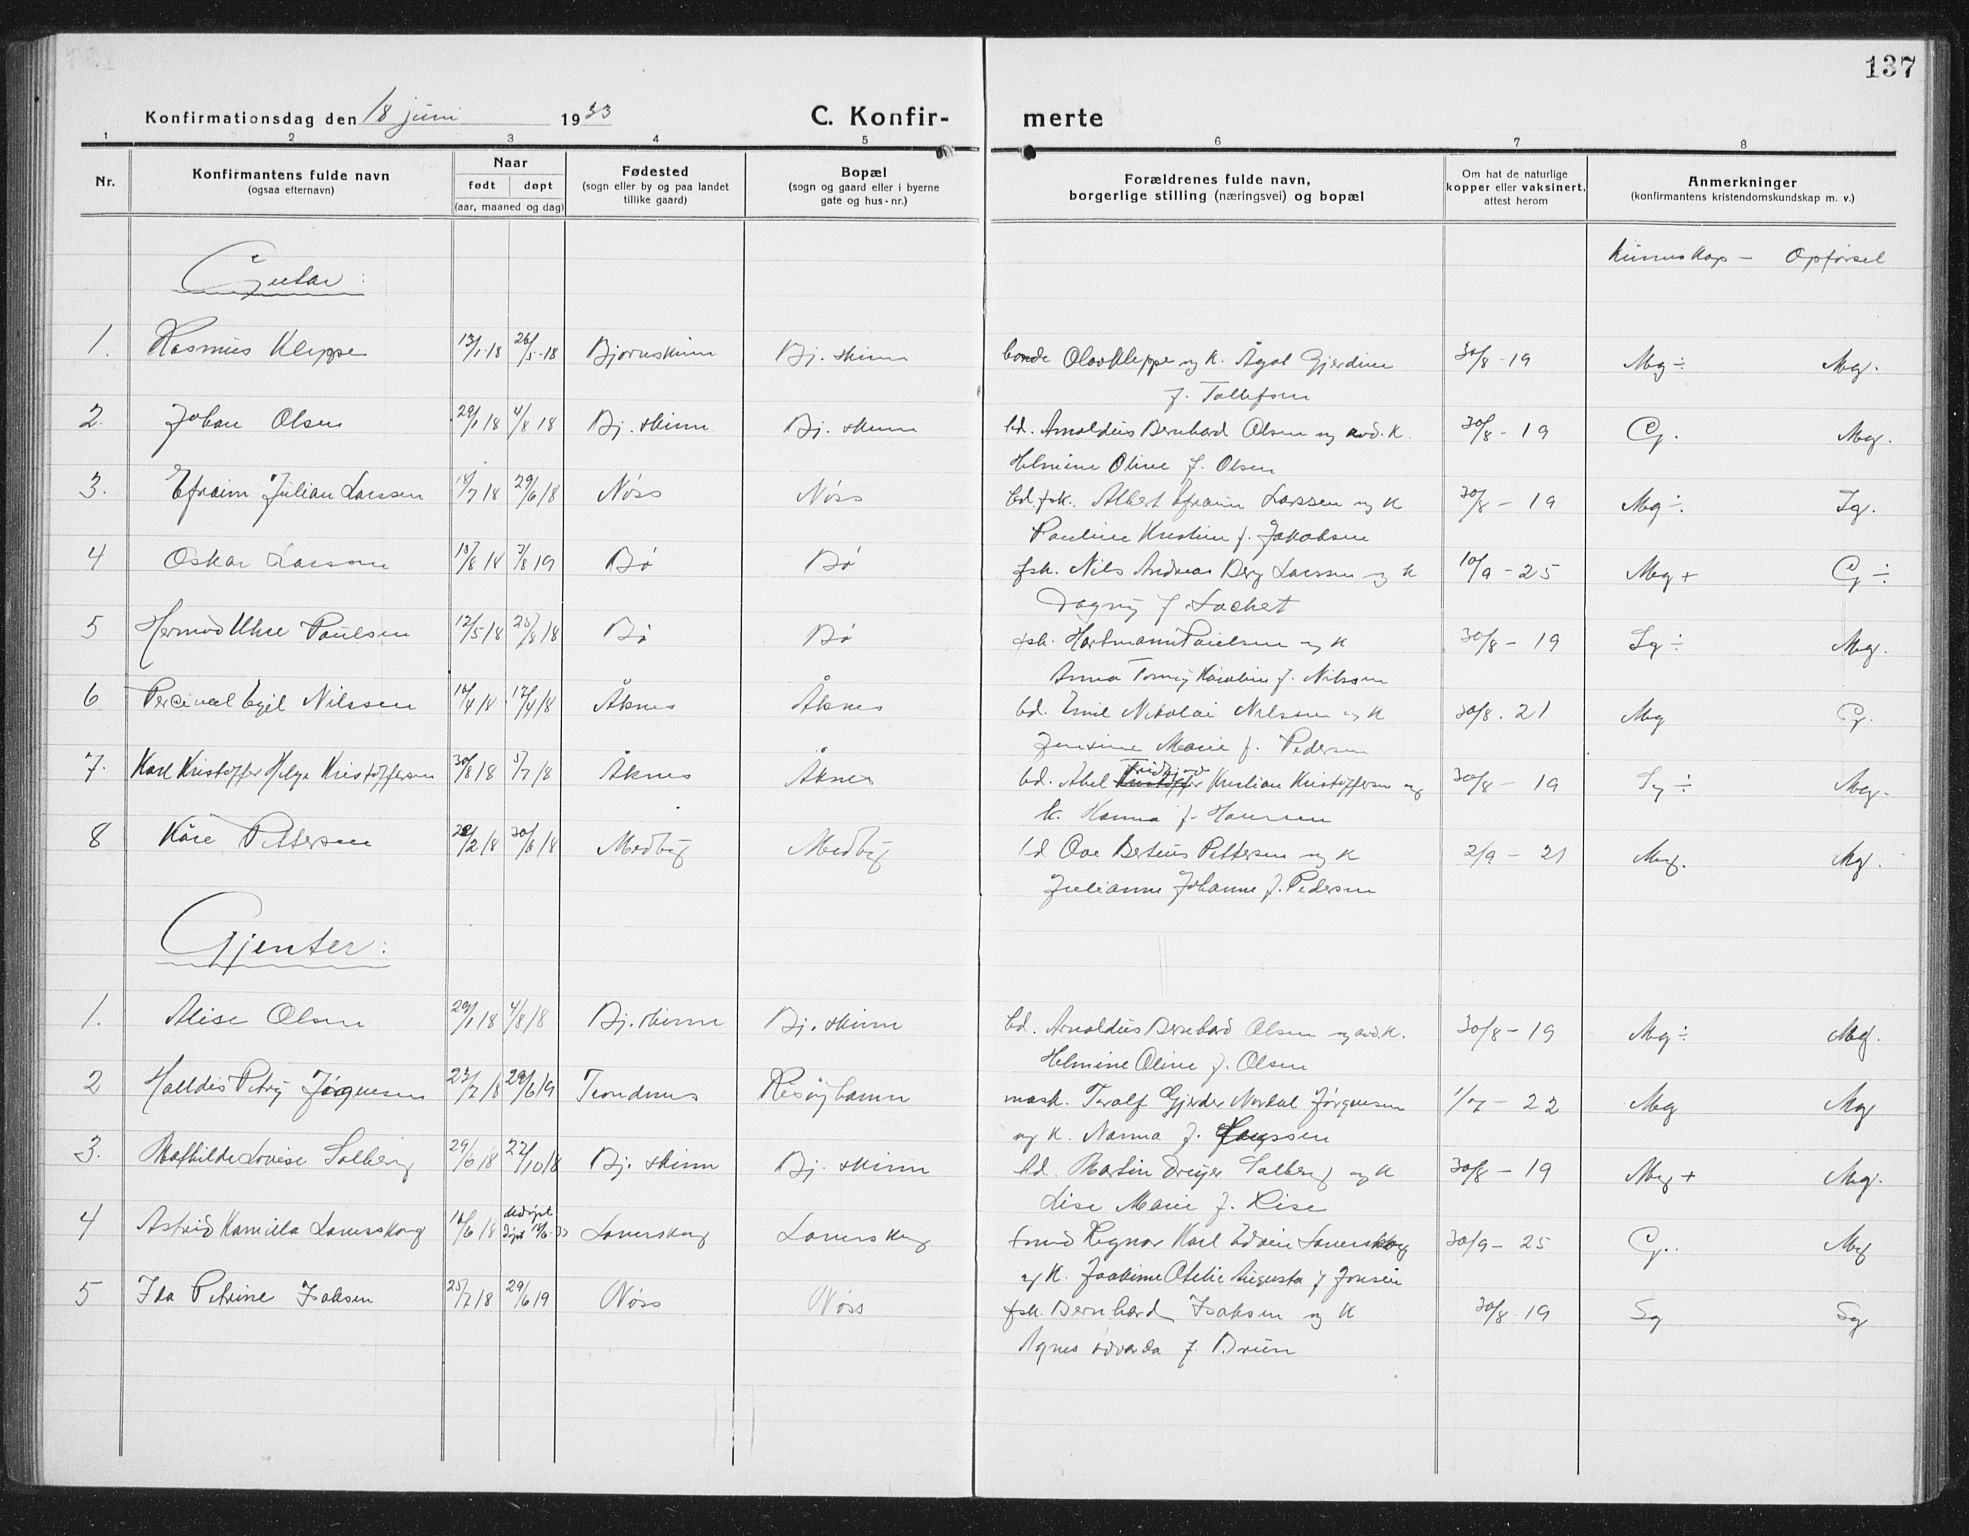 137
Konfirmationsdag den 18 juni 1933
C. Konfir- merte
1 2 3 4 5 6 7 8
Nr.
Konfirmantens fulde navn
(ogsaa efternavn)
Naar
født døpt
(aar, maaned og dag)
Fødested
(sogn eller by og paa landet
tillike gaard)
Bopæl
(sogn og gaard eller i byerne
gate og hus-nr.)
Forældrenes fulde navn,
borgerlige stilling (næringsvei) og bopæl
Om hat de naturlige
kopper eller vaksinert,
attest herom
Anmerkninger
(konfirmantens kristendomskundskap m. v.)
Kunnskap - Opførsel
Gutar:
1. Rasmus Kleppe 13/1-18 26/5-18 Bjørnskinn Bj. skinn bonde Olav Kleppe og K. Ågot Gjerdine 30/8-19 Mg÷ Mg.
f. Tollefsen
2. Johan Olsen 29/1 18 4/8 18 Bj. skinn Bj. skinn bd. Arnoldus Bernhard Olsen og avd. K. 30/8-19 G. Mg.
Helmine Oline f. Olsen
3. Efraim Julian Larssen 18/7 18 29/6 18 Nöss Nöss bd. fsk. Albert Efraim Larssen og K 30/8-19 Mg÷ Tg.
Pauline Kristine f. Jakobsen
4 Oskar Larsen 18 7/8 19 Bö Bö fsk. Nils Andreas Berg Larssen og K 10/9-25 Mg+ G÷
Dagny f.
5 Hermod Uhre Paulsen 12/5 18 25/8 18 Bö Bö fsk. Hartmann Paulsen og K 30/8-19 Tg÷ Mg.
Anna Tomy Karoline f. Nilssen
6 Percival Egil Nilssen 14/4 18 Åknes Åknes bd. Emil Nikolai Nilssen og K 30/8.21 Mg G.
Jensine Marie f. Pedersen
7. Karl Kristoffer Helge Kristoffersen 30/8 18 Åknes Åknes bd. Abel Kristian Kristoffersen og 30/8-19 ÷ Mg.
k. Hanna f. Hansen
8 Kåre Pettersen 18 30/6 18 Medby Medby bd Ove Berteus Pettersen og K 2/9-21 Mg. Mg.
Julianne Johanne f. Pedersen
Gjenter:
1. Alise Olsen 29/1 18 4/8 18 Bj. skinn Bj. skinn bd. Arnoldus Bernhard Olsen og avd. K. 30/8-19 Mg÷ Mg.
Helmine Oline f. Olsen
2 Halldis Petry Jørgensen 23/7 18 29/6 19 Trondenes Risøyhamn mask. Toralf Gjerder Jørgensen 1/7-22 Mg Mg
og K. Nanna f.
3. Mathilde Lovise Solberg 29/6 18 27/10 18 Bj. skinn Bj. skinn bd. Martin Dreyer Solberg og K 30/8-19 Mg+ Mg.
Lise Marie f.
4 Astrid Kamilla Lanesskog 18 døpt Lanesskog Lanesskog Ragnar Karl Edvin Lanesskog 30/9-25 G. Mg
og K. Joakime Otelie Augusta f Jensen
5 Ida Petrine Isaksen 25/7 18 29/6 19 Nöss Nöss fsk. Bernhard Isaksen og K 30/8.19 Sg Sg
Agnes Edvarda f. Bruun